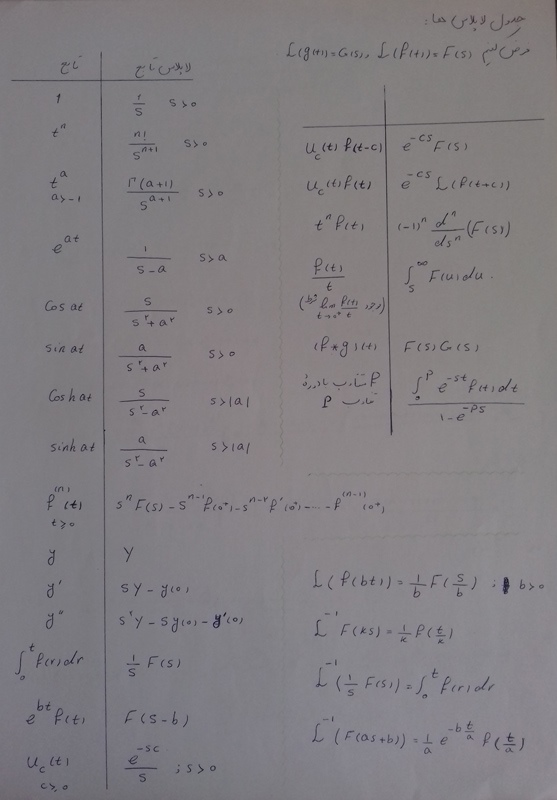 جدول لاپلاس ها:
فرض کنیم L(f(t))=F(s) , L(g(t))=G(s)
تابع | لاپلاس تابع
1 | 1/s s>0
t^n | n!/s^(n+1) s>0
t^a a>-1 | Γ(a+1)/s^(a+1) s>0
e^(at) | 1/(s-a) s>a
cos at | s/(s^۲+a^۲) s>0
sin at | a/(s^۲+a^۲) s>0
cosh at | s/(s^۲-a^۲) s>|a|
sinh at | a/(s^۲-a^۲) s>|a|
f^(n)(t) t≥0 | s^n F(s) - s^(n-1) f(0^+) - s^(n-۲) f'(0^+) - ... - f^(n-1)(0^+)
y | Y
y' | sY - y(0)
y'' | s^۲Y - sy(0) - y'(0)
∫_0^t f(r)dr | 1/s F(s)
e^(bt) f(t) | F(s-b)
u_c(t) c≥0 | e^(-sc)/s ; s>0
u_c(t) f(t-c) | e^(-cs) F(s)
u_c(t) f(t) | e^(-cs) L(f(t+c))
t^n f(t) | (-1)^n d^n/ds^n (F(s))
f(t)/t | ∫_s^∞ F(u)du.
lim t→0^+ f(t)/t
(f*g)(t) | F(s)G(s)
f متناوب با دوره تناوب P | ∫_0^P e^(-st) f(t)dt / (1-e^(-Ps))
L(f(bt))=1/b F(s/b) ; b>0
L^-1 F(ks)=1/k f(t/k)
L^-1(1/s F(s))=∫_0^t f(r)dr
L^-1(F(as+b))=1/a e^(-b t/a) f(t/a)